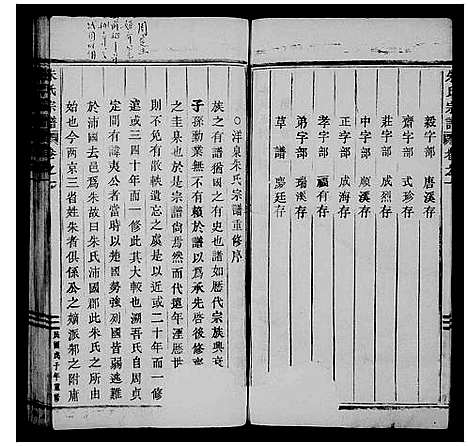 朱氏宗譜
毅字部 唐溪存
齋字部 式珍存
莊字部 成烈存
中字部 成海存
正字部 順溪存
孝字部 福有存
享字部 瑞溪存
草譜 慶廷存
○洋泉朱氏宗譜重修序
族之有譜猶國之有史也諸如歷代宗族興衰
子孫勳業無不有賴於譜以爲承先啓後修齊
之圭臬也於是宗譜尙焉然而代遠年湮歷世
旣久不免有散軼遺忘之虞是以近或二十年一修
或三四十年而一修此其大較也溯吾氏自周貞
定間有諱夷公者當時以楚國勢强列國皆弱逃難
於沛國去邑爲朱故曰朱氏沛國郡此朱氏之所由
始也今兩京三省姓朱者俱係公之嫡派鄰之附庸
朱氏宗譜 卷之
民國丙子年重修